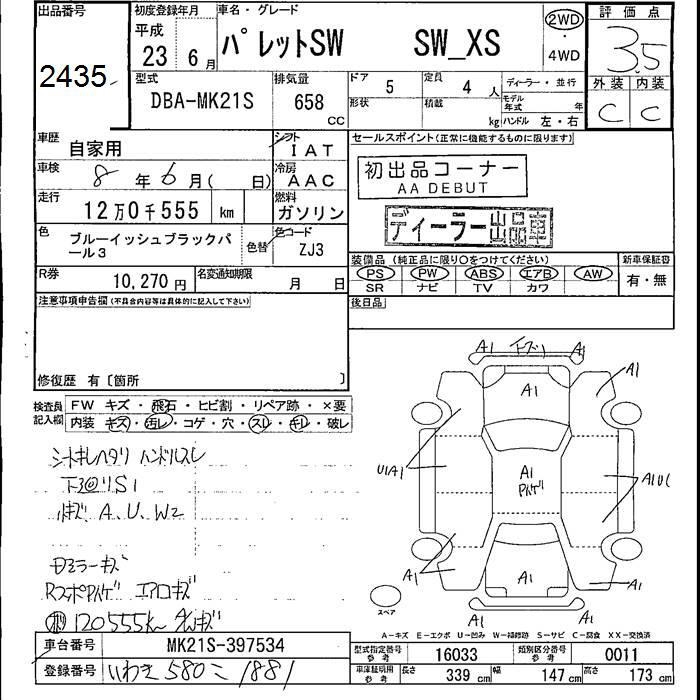 出品番号
2435
初度登録年月
平成
23 6月
車名・グレード
パレットSW SW_XS
2WD
・
4WD
評価点
3.5
外装 内装
C C
型式
DBA-MK21S
排気量
658
CC
ドア 5
定員 4 人
ディーラー・並行
形状
積載
kg
モデル年式 年
ハンドル 左・右
車歴
自家用
シフト
IAT
セールスポイント(正常に機能するものに限ります)
初出品コーナー
AA DEBUT
ディーラー出品車
車検
8 年 6 月( 日)
冷房
AAC
走行
12万0千555 km
燃料
ガソリン
色
ブルーイッシュブラックパール3
色替
色コード
ZJ3
装備品(純正品に限り○をつけてください)
PS PW ABS エアB AW
SR ナビ TV カワ
新車保証書
有・無
R券
10,270円
名変通知期限
月 日
後日品
注意事項申告欄(不具合内容等は具体的に記入して下さい)
修復歴 有〔箇所 〕
検査員記入欄
FW キズ・飛石・ヒビ割・リペア跡・×要
内装 キズ・汚レ・コゲ・穴・スレ・キレ・破レ
シートキレヘタリ ハンドルスレ
下回リS1
A、U、W2
ミラーキズ
エアロキズ
120555km
A1 A1
A1 A1
U1A1
A1
A1U1
A1 A1 A1
A1 A1
スペア
A-キズ E-エクボ U-凹み W-補修跡 S-サビ C-腐食 XX-交換済
車台番号
MK21S-397534
登録番号
いわき 580 こ 1881
型式指定番号
参考
16033
類別区分番号
参考
0011
車庫証明用
参考
長さ 339 cm
幅 147 cm
高さ 173 cm